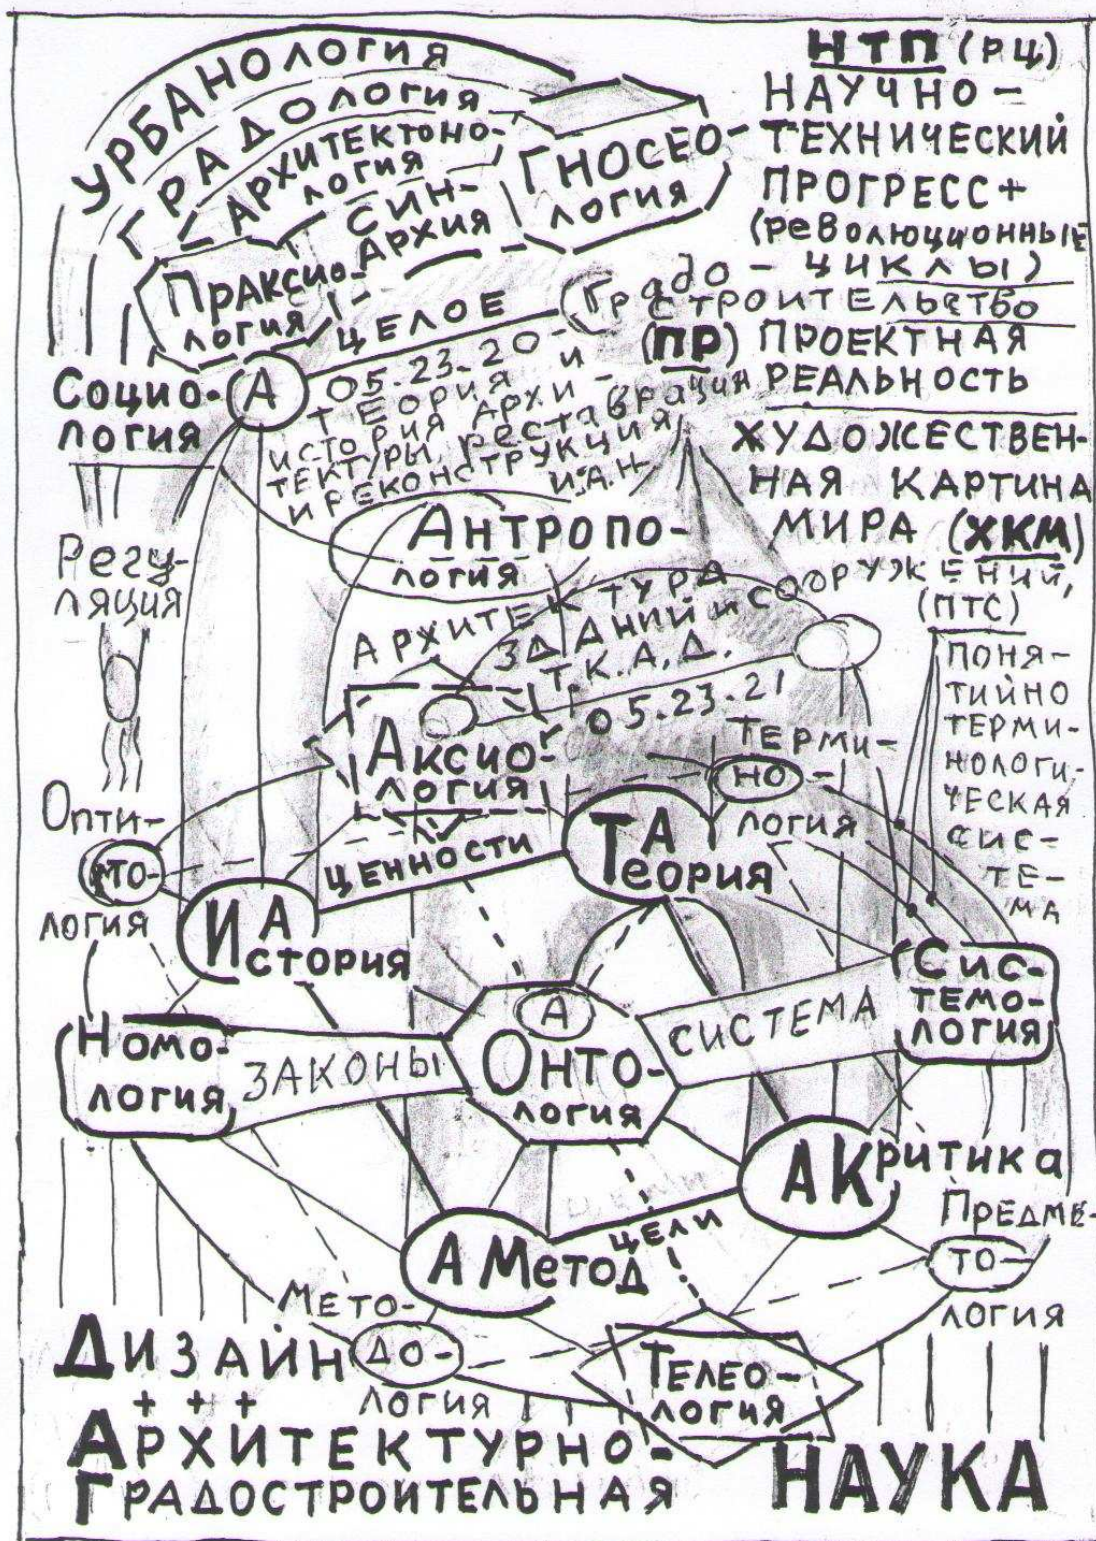 УРБАНОЛОГИЯ
ГРАДОЛОГИЯ
АРХИТЕКТОНО-
ЛОГИЯ
СИН-
АРХИЯ
ГНОСЕО-
ЛОГИЯ
ПРАКСИО-
ЛОГИЯ
ЦЕЛОЕ
НТП (РЦ)
НАУЧНО-
ТЕХНИЧЕСКИЙ
ПРОГРЕСС+
(революционные
циклы)
Градо-
строительство
(ПР) ПРОЕКТНАЯ
РЕАЛЬНОСТЬ
ХУДОЖЕСТВЕН-
НАЯ КАРТИНА
МИРА (ХКМ)
Социо-
логия
А
05.23.20-
ТЕОРИЯ И
ИСТОРИЯ АРХИ-
ТЕКТУРЫ, реставрация
И РЕКОНСТРУКЦИЯ
И.А.Н.
АНТРОПО-
ЛОГИЯ
Регу-
ляция
АРХИТЕКТУРА
ЗДАНИЙ И СООРУЖЕНИЙ,
Т.К.А.Д.
05.23.21
(ПТС)
ПОНЯ-
ТИЙНО
ТЕРМИ-
НОЛОГИ-
ЧЕСКАЯ
СИС-
ТЕ-
МА
АКСИО-
ЛОГИЯ
ТЕРМИ-
НО-
ЛОГИЯ
Опти-
МО-
ЛОГИЯ
ЦЕННОСТИ
ТА
Теория
ИА
История
СИС-
ТЕМО-
ЛОГИЯ
СИСТЕМА
А
ОНТО-
ЛОГИЯ
НОМО-
ЛОГИЯ
ЗАКОНЫ
АКритика
ПРЕДМЕ-
ТО-
ЛОГИЯ
ЦЕЛИ
А Метод
МЕТО-
ДО-
ЛОГИЯ
ТЕЛЕО-
ЛОГИЯ
ДИЗАЙН
+ + +
АРХИТЕКТУРНО-
ГРАДОСТРОИТЕЛЬНАЯ
НАУКА